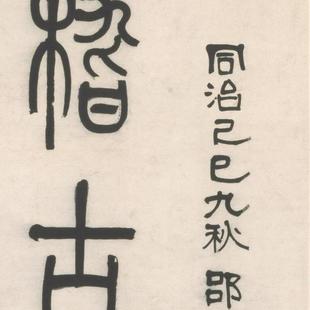 同治己巳九秋 邵
稽古